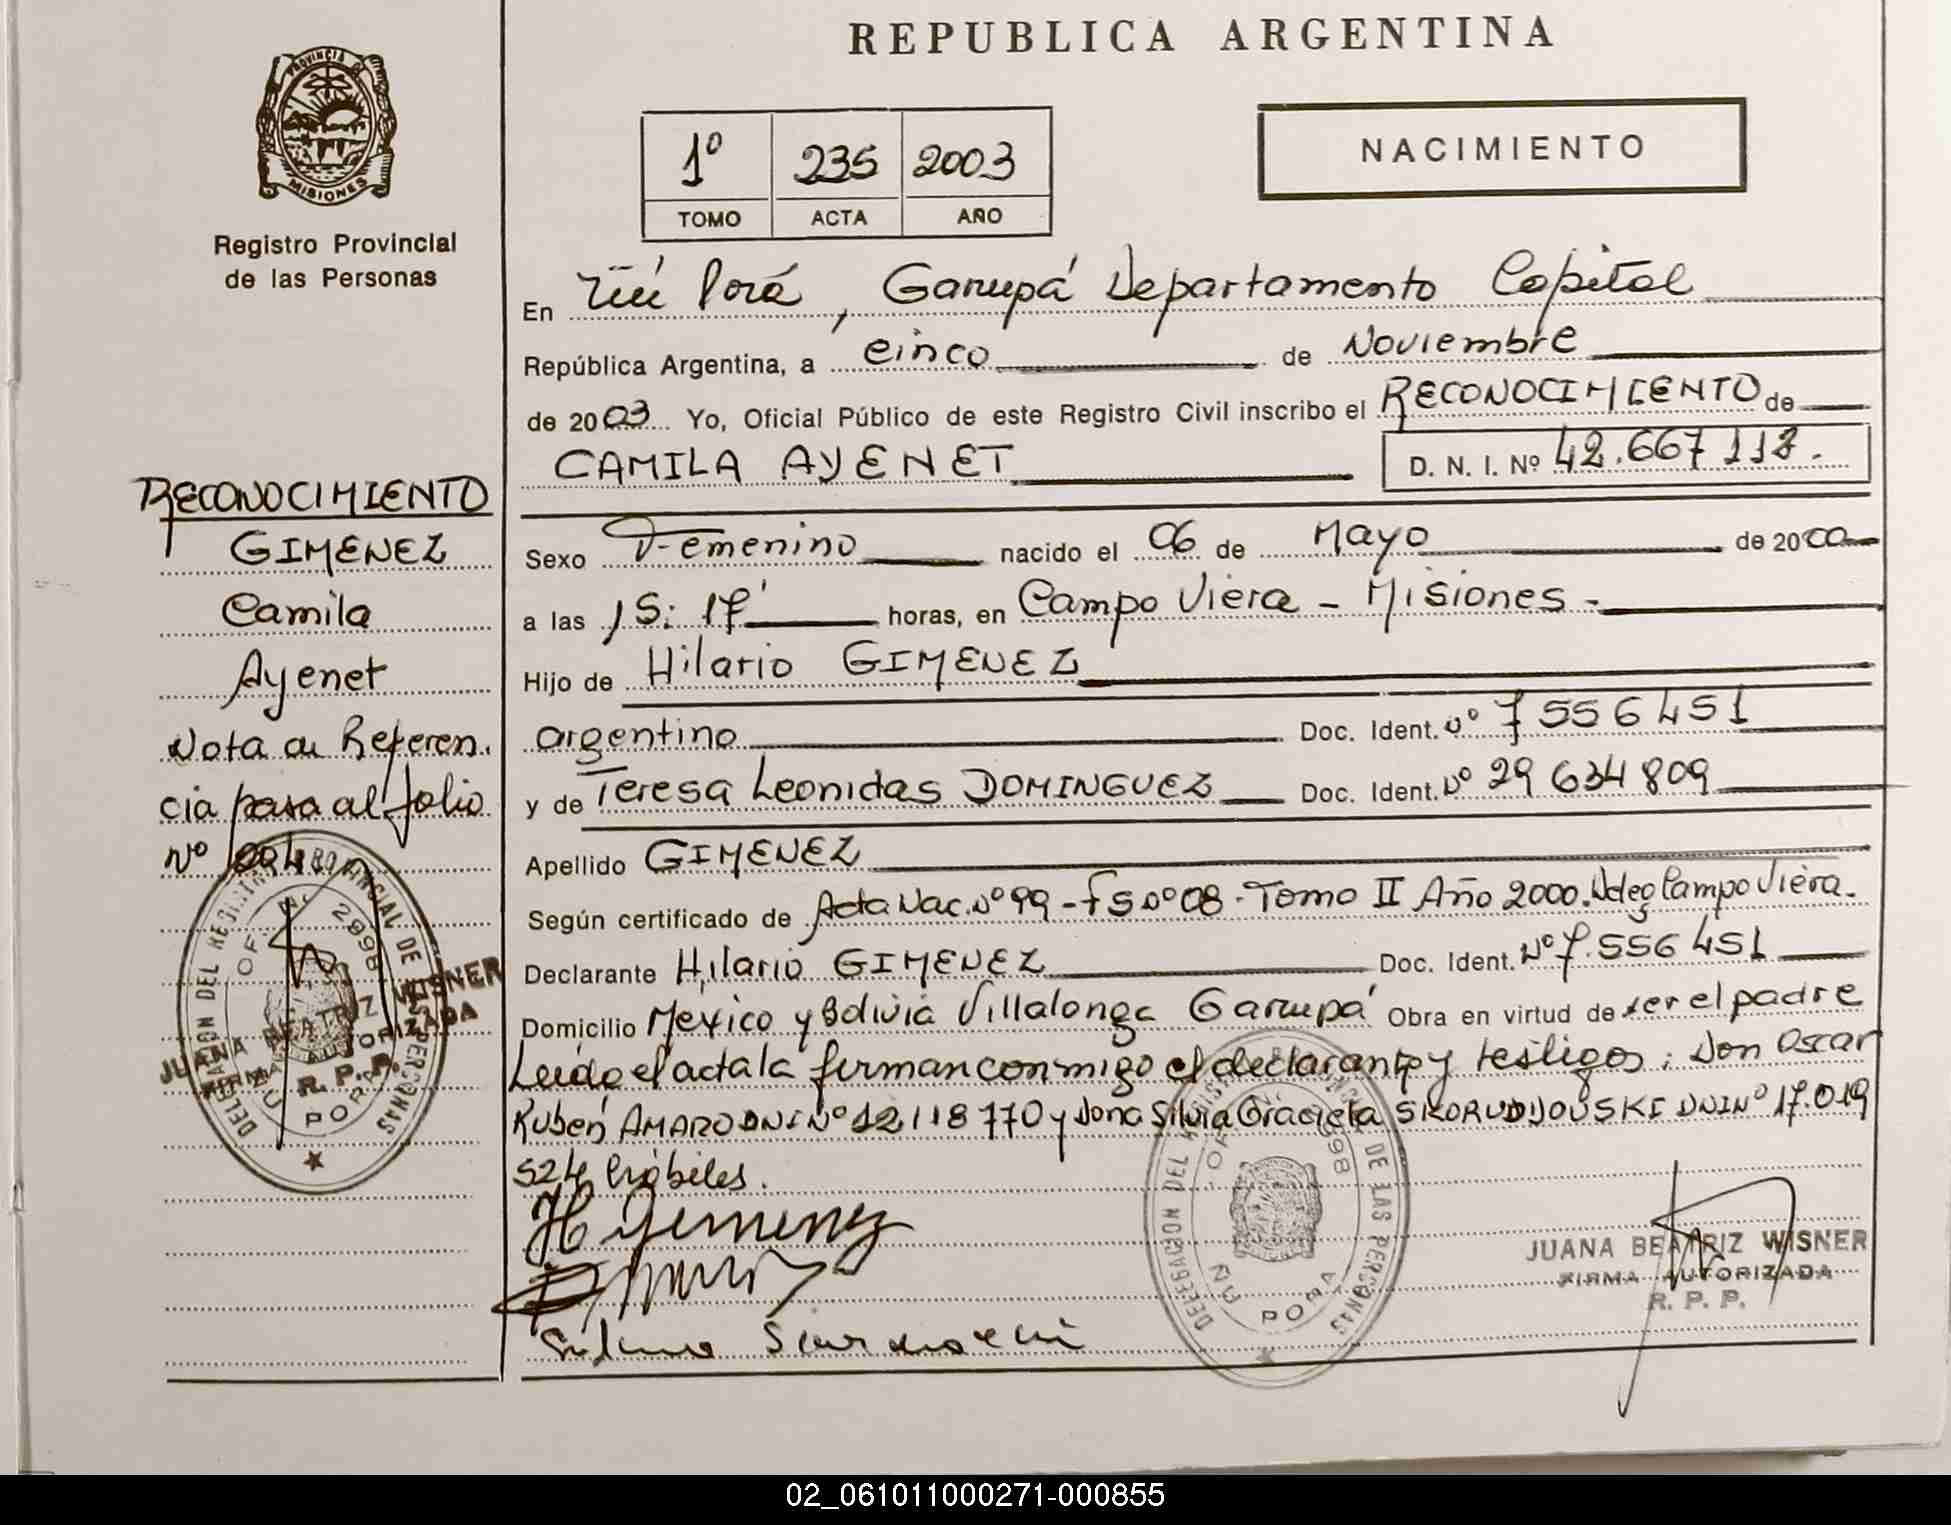 PROVINCIA DE
MISIONES
Registro Provincial
de las Personas
REPUBLICA ARGENTINA
1º 235 2003
TOMO ACTA AÑO
NACIMIENTO
En Ñu Porá, Garupá Departamento Capital
República Argentina, a cinco de Noviembre
de 2003 Yo, Oficial Público de este Registro Civil inscribo el RECONOCIMIENTO de
CAMILA AYENET D. N. I. Nº 42.667 113.
Sexo Femenino nacido el 06 de Mayo de 2000
a las 15:17 horas, en Campo Viera - Misiones -
Hijo de Hilario GIMENEZ
argentino Doc. Ident. Nº 7 556 451
y de Teresa Leonidas DOMINGUEZ Doc. Ident. Nº 29 634 809
Apellido GIMENEZ
Según certificado de Acta Nac. Nº 99 - Fs Nº 08 - Tomo II Año 2000. Deleg Campo Viera.
Declarante Hilario GIMENEZ Doc. Ident. Nº 7.556 451
Domicilio Mexico y Bolivia Villalonga Garupá Obra en virtud de ser el padre
Leída el acta la firman conmigo el declarante y testigos: Don Oscar
Rubén AMARO DNI Nº 12 118 770 y Doña Silvia Graciela SKORUDIJOUSKI DNI Nº 17.019
524 hábiles.
H Gimenez
DELEGACION DEL REGISTRO PROVINCIAL DE LAS PERSONAS
OF. 2998
ÑU PORA
JUANA BEATRIZ WISNER
FIRMA AUTORIZADA
R. P. P.
RECONOCIMIENTO
GIMENEZ
Camila
Ayenet
Nota de Referen.
cia pasa al folio
Nº 004
DELEGACION DEL REGISTRO PROVINCIAL DE LAS PERSONAS
OF. 2998
ÑU PORA
JUANA BEATRIZ WISNER
FIRMA AUTORIZADA
R. P. P.
02_061011000271-000855